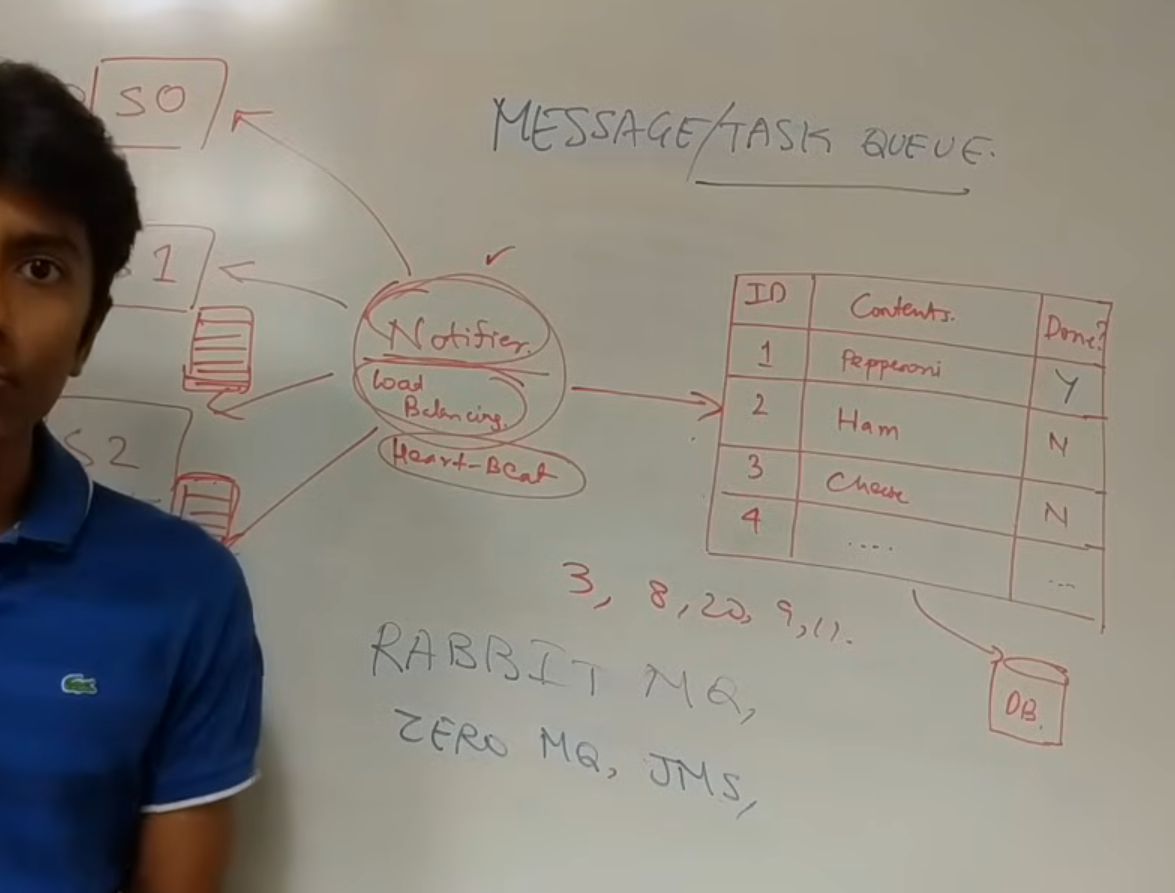 S0
MESSAGE/TASK QUEUE.
1
S2
Notifier.
Load
Balancing.
Heart-Beat
ID Contents. Done?
1 Pepperoni Y
2 Ham N
3 Cheese N
4 .... ...
3, 8, 20, 9, 11.
RABBIT MQ,
ZERO MQ, JMS,
DB.